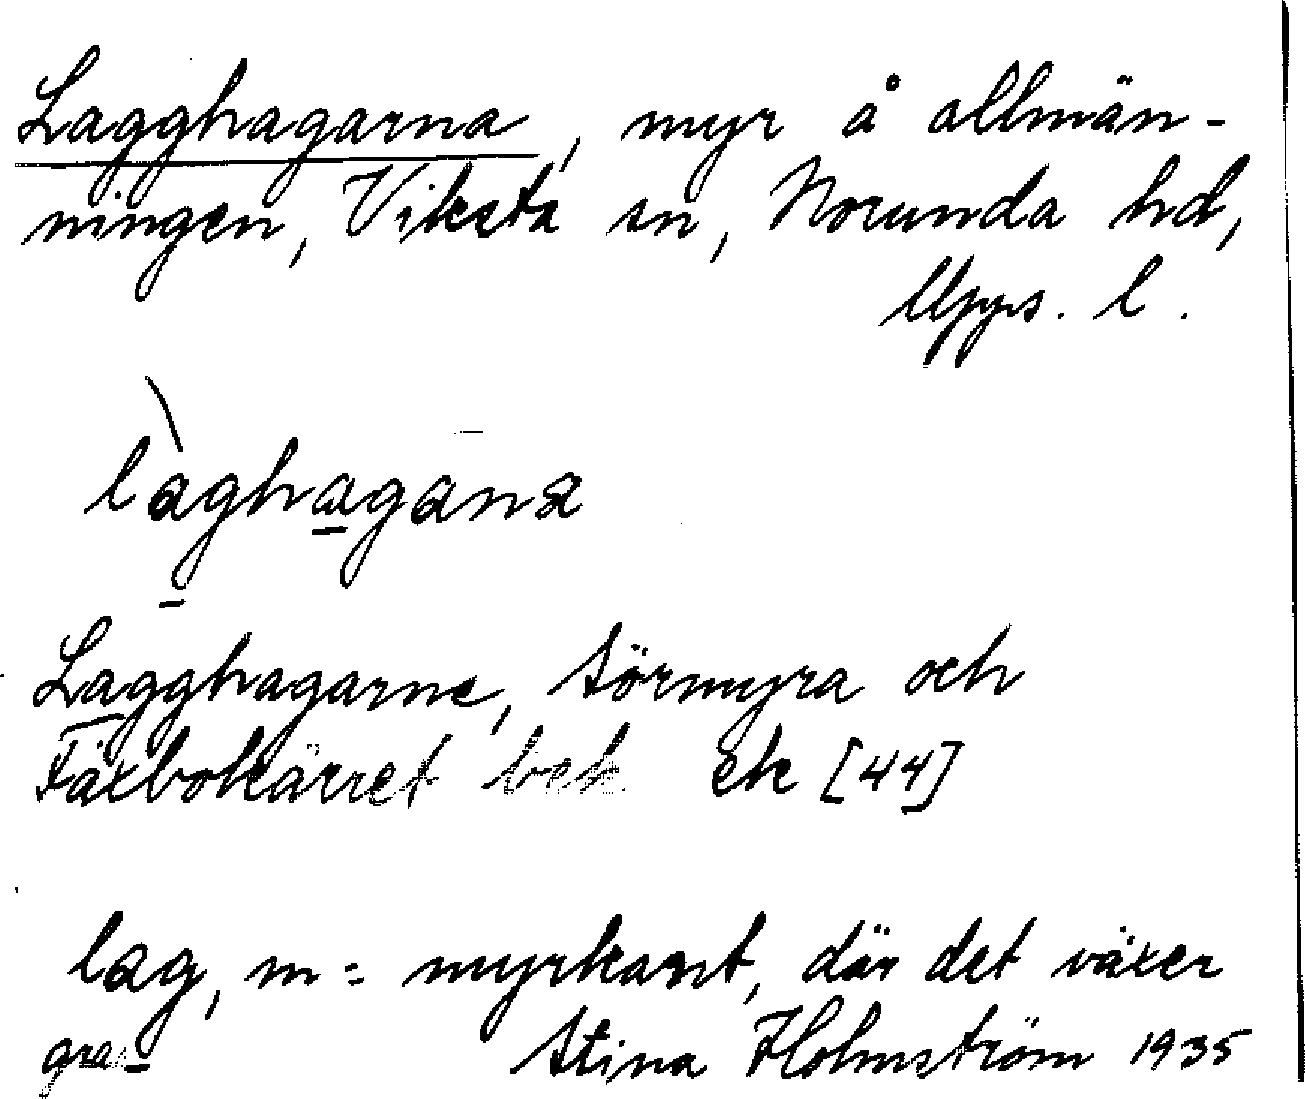 Lagghagarna, myr å allmän-
ningen, Viksta sn, Norunda hd,
Upps. l.
làghagana
Lagghagarne, Sörmyra och
Fäxbokärret bek. Ek [44]
lag, m = myrkant, där det växer
gran Stina Holmström 1935